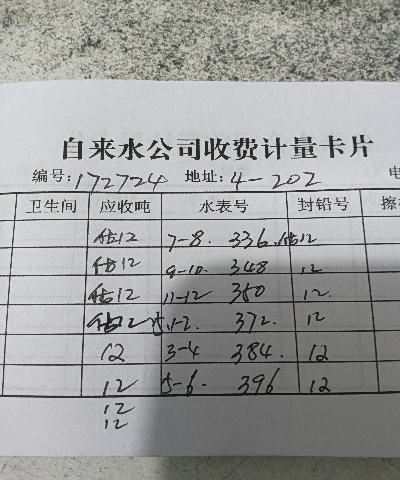 自来水公司收费计量卡片
编号:172724 地址:4-202 电
卫生间 应收吨 水表号 封铅号 擦
估12 7-8. 336. 估12
估12 9-10. 348 12
估12 11-12 360 12.
估12 1-2. 372. 12
12 3-4 384. 12
12 5-6. 396 12
12
12